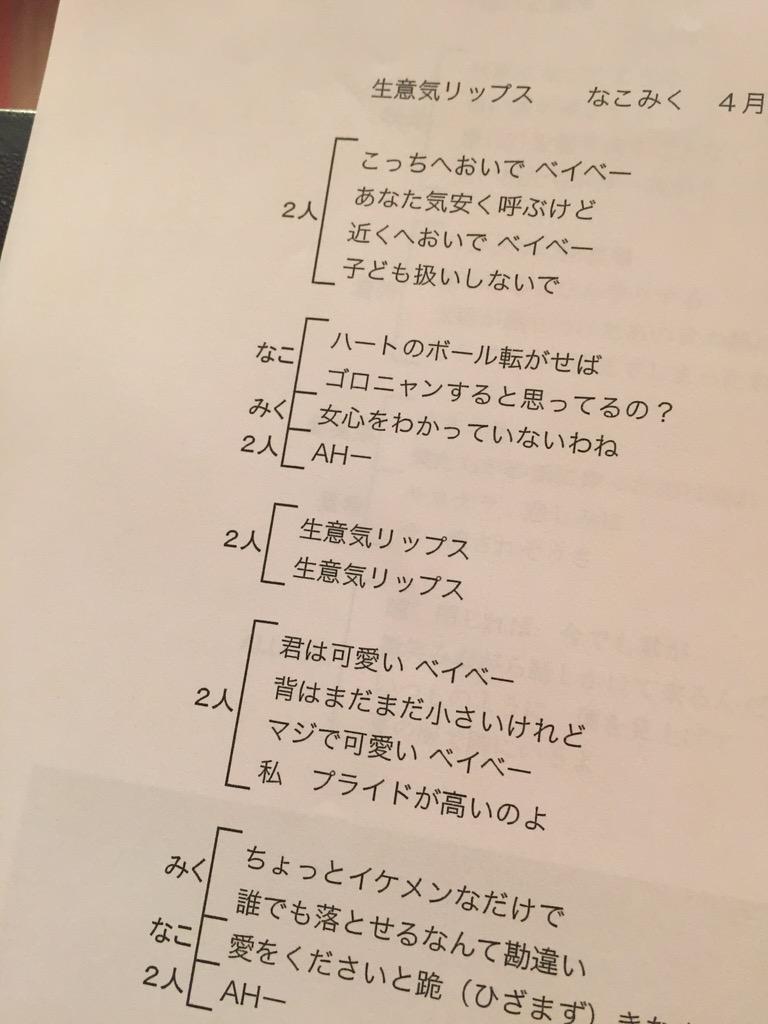 生意気リップス なこみく 4月
2人
こっちへおいで ベイベー
あなた気安く呼ぶけど
近くへおいで ベイベー
子ども扱いしないで
なこ
ハートのボール転がせば
ゴロニャンすると思ってるの？
みく
女心をわかっていないわね
2人
AHー
2人
生意気リップス
生意気リップス
2人
君は可愛い ベイベー
背はまだまだ小さいけれど
マジで可愛い ベイベー
私 プライドが高いのよ
みく
ちょっとイケメンなだけで
誰でも落とせるなんて勘違い
なこ
愛をくださいと跪（ひざまず）き
2人
AHー